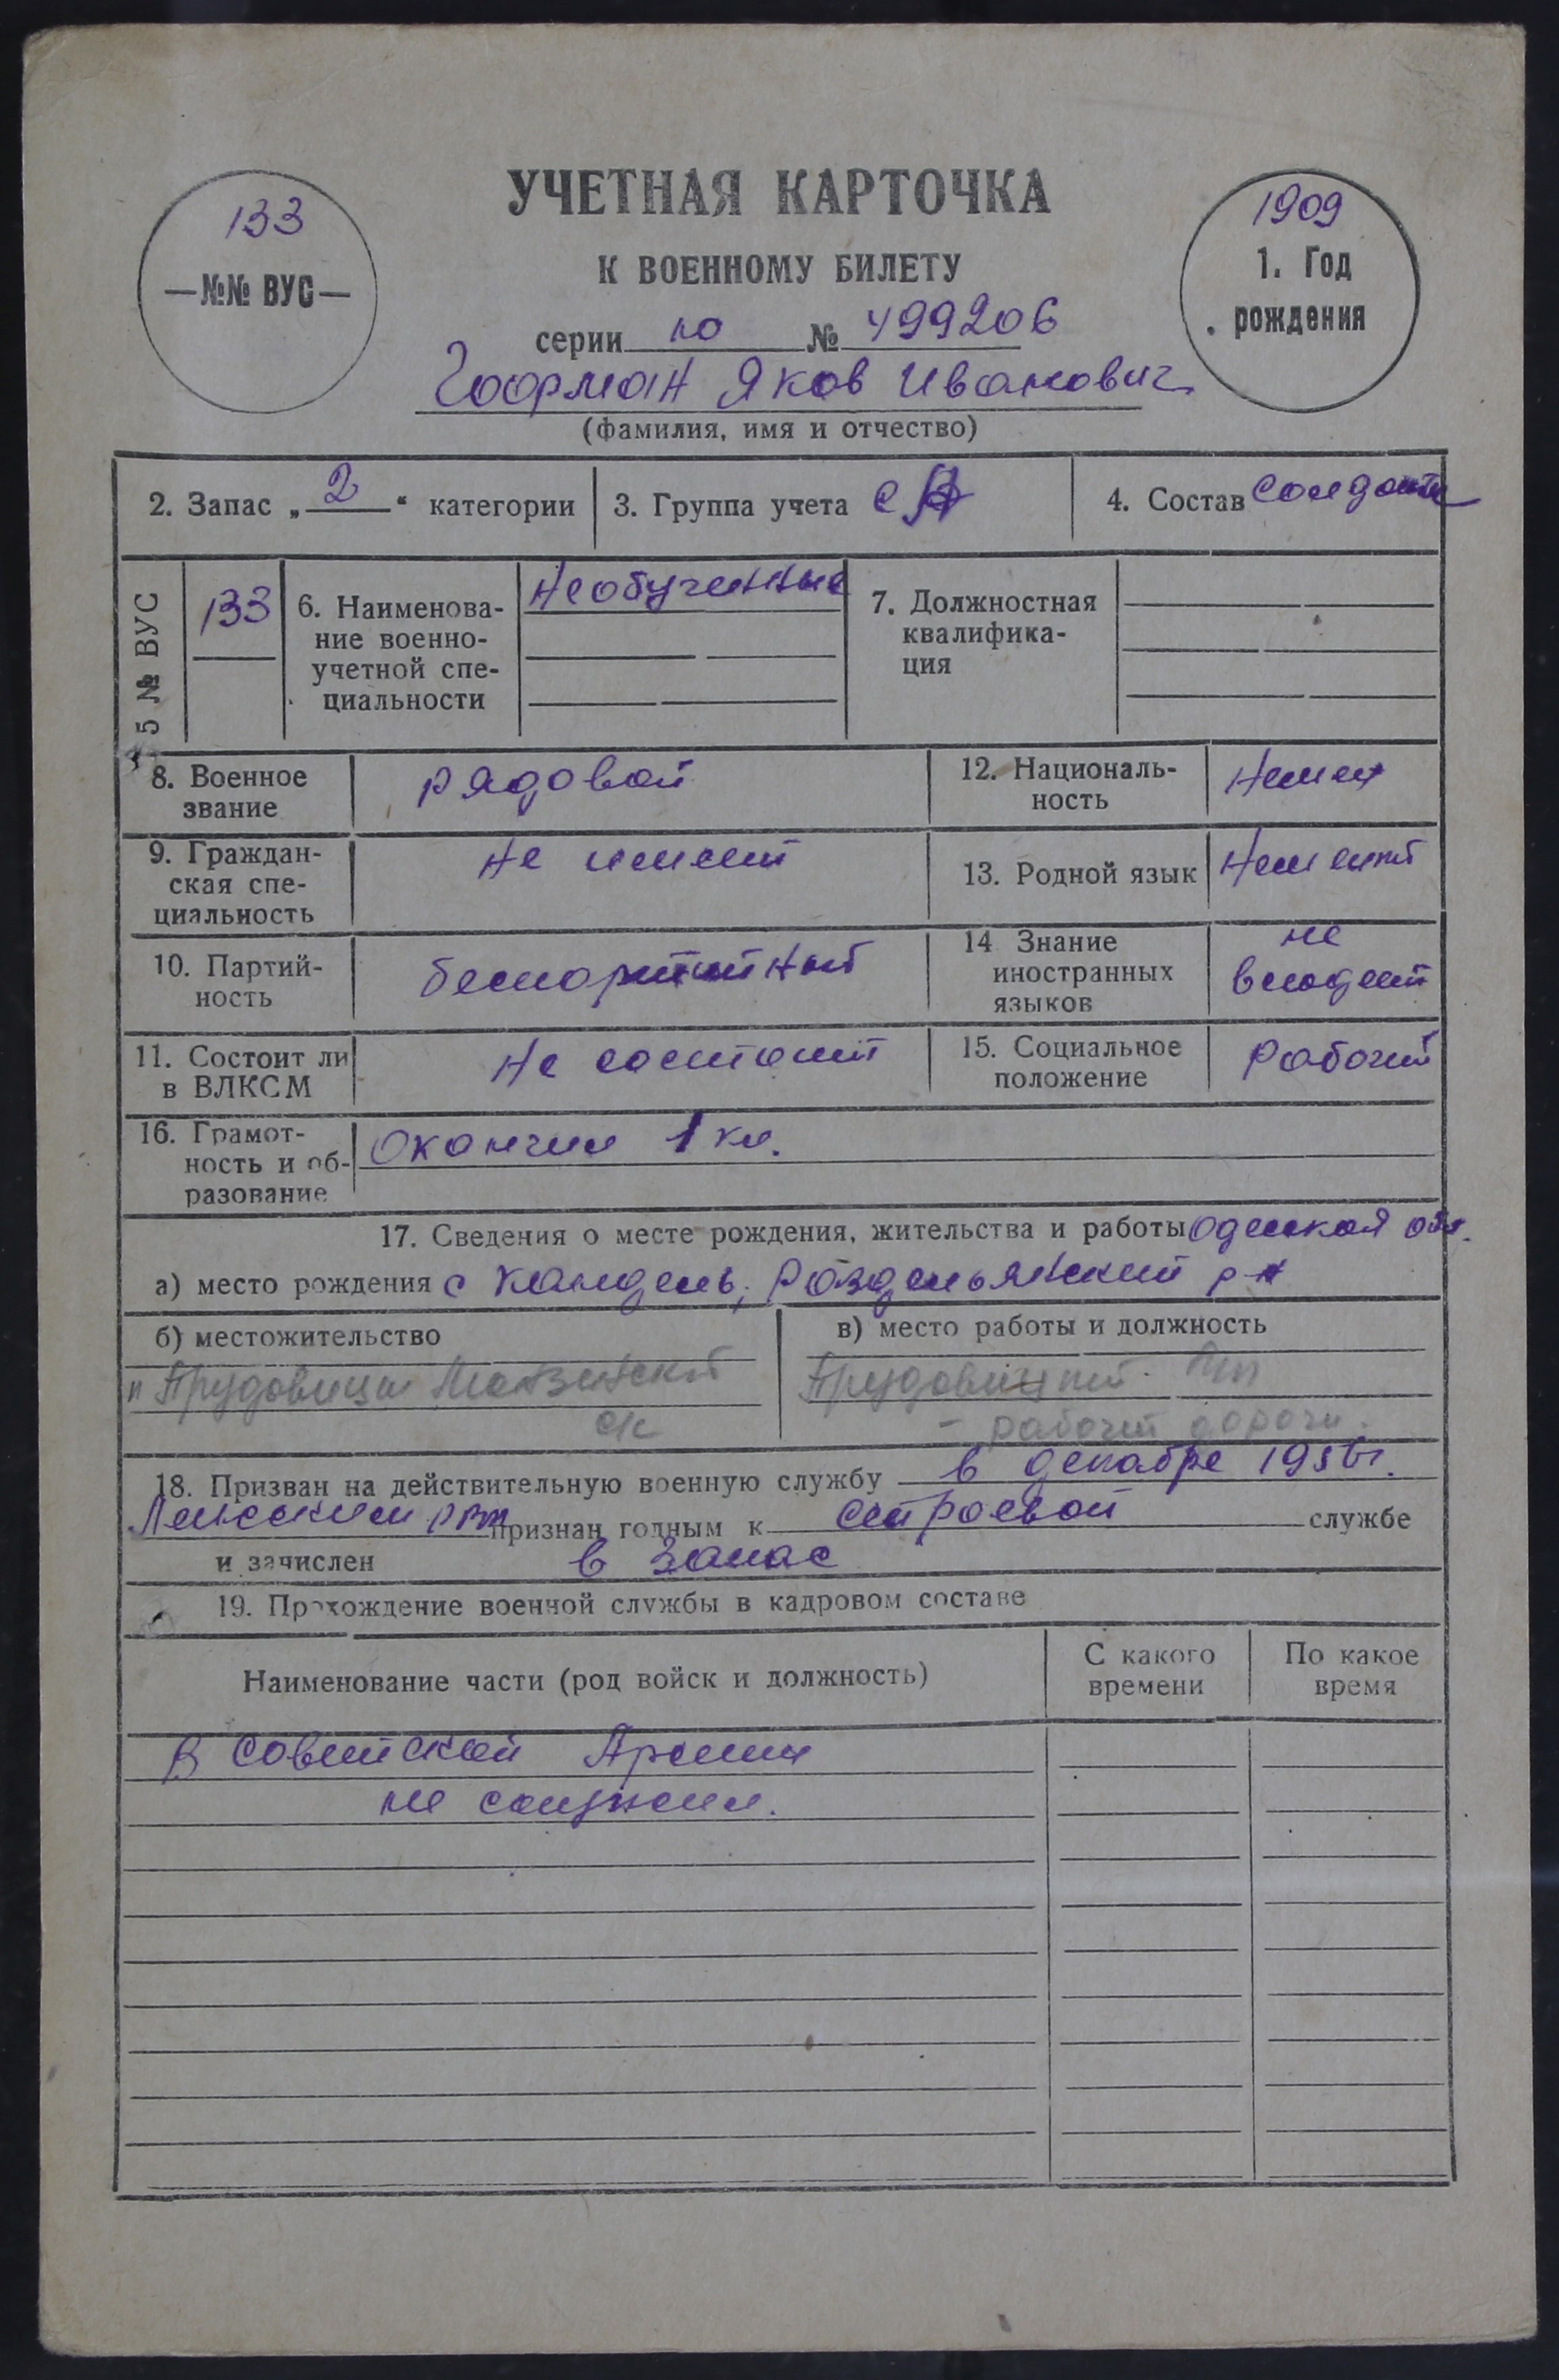 УЧЕТНАЯ КАРТОЧКА
К ВОЕННОМУ БИЛЕТУ
133
—№№ ВУС—
1909
1. Год
рождения
серии но № 499206
Гофман Яков Иванович
(фамилия, имя и отчество)
2. Запас „ 2 “ категории
3. Группа учета СА
4. Состав солдаты
5 № ВУС
133
6. Наименова-
ние военно-
учетной спе-
циальности
Необученные
7. Должностная
квалифика-
ция
8. Военное
звание
рядовой
12. Националь-
ность
Немец
9. Граждан-
ская спе-
циальность
Не имеет
13. Родной язык
Немецкий
10. Партий-
ность
беспартийный
14 Знание
иностранных
языков
не
владеет
11. Состоит ли
в ВЛКСМ
Не состоит
15. Социальное
положение
Рабочий
16. Грамот-
ность и об-
разование
Окончил 1 кл.
17. Сведения о месте рождения, жительства и работы Одесская обл.
а) место рождения с Кандель, Роздельянский р-н
б) местожительство
в) место работы и должность
п Трудовици
с/с
рабочий дороги.
18. Призван на действительную военную службу в декабре 1956г.
Ленским РВК признан годным к строевой службе
и зачислен в запас
19. Прохождение военной службы в кадровом составе
Наименование части (род войск и должность)
С какого
времени
По какое
время
В Советской Армии
не служил.